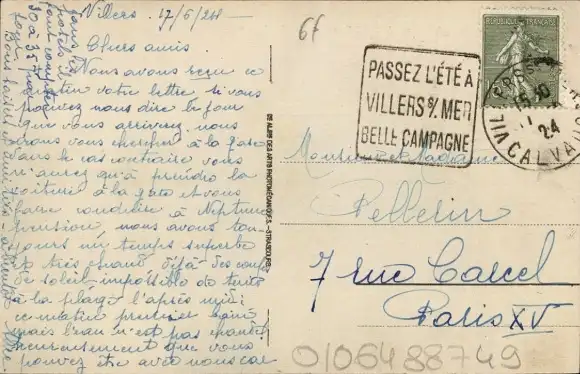 Villers. 17/6/24
Chers amis.
Nous avons reçu ce
matin votre lettre si vous
pouvez nous dire le jour
que vous arrivez nous
irons vous chercher à la gare
dans le cas contraire vous
n'aurez qu'à prendre la
voiture à la gare et vous
faire conduire à Neptune
pension, nous avons tou-
jours un temps superbe
et très chaud, déjà des coups
de soleil, impossible de tenir
à la plage l'après midi
ce matin premier bain
mais l'eau n'est pas chaude
que vous
pouvez être avec nous car
dans les
hotels il
faut compter
30 à 35 francs
par jour
Bons baisers
à bientôt
6f
PASSEZ L'ÉTÉ À
VILLERS S/ MER
BELLE CAMPAGNE
REPUBLIQUE FRANÇAISE
15
24
CALVADOS
Monsieur Madame
Pellerin
7 rue Carcel
Paris XV
DES ARTS PHOTOMECANIQUES
STRASBOURG
0106488749